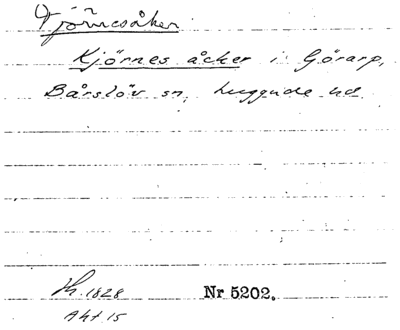 Tjörnesåker
Kjörnes åcker i Görarp,
Bårslöv sn, Luggude hd
1828 Nr 5202.
Akt 15